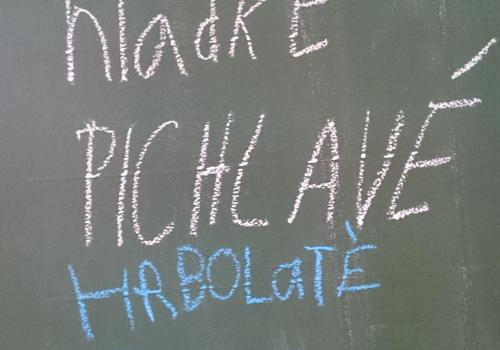 hladkE
PICHLAVÉ
HRBOLaTÈ